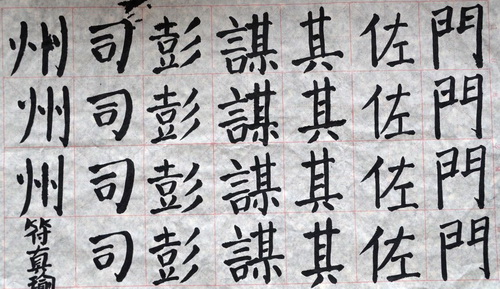 門門門門
佐佐佐佐
其其其其
謀謀謀謀
彭彭彭彭
司司司司
州州州
符真